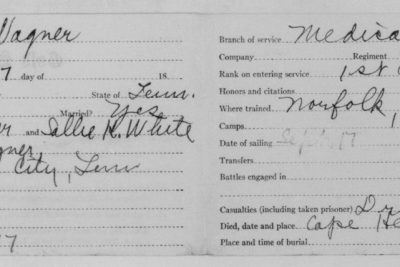 Wagner
7 day of 18
State of Tenn.
Married? Yes
er and Sallie H. White
gner
City, Tenn
7
Branch of service Medica
Company Regiment
Rank on entering service 1st
Honors and citations
Where trained Norfolk,
Camps
Date of sailing Sept. 17
Transfers
Battles engaged in
Casualties (including taken prisoner) Dr
Died, date and place Cape He
Place and time of burial